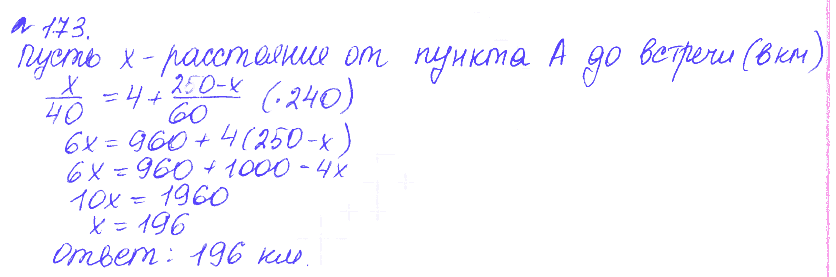 № 173.
Пусть x - расстояние от пункта A до встречи (в км)
x/40 = 4 + (250-x)/60 (·240)
6x = 960 + 4(250-x)
6x = 960 + 1000 - 4x
10x = 1960
x = 196
Ответ: 196 км.